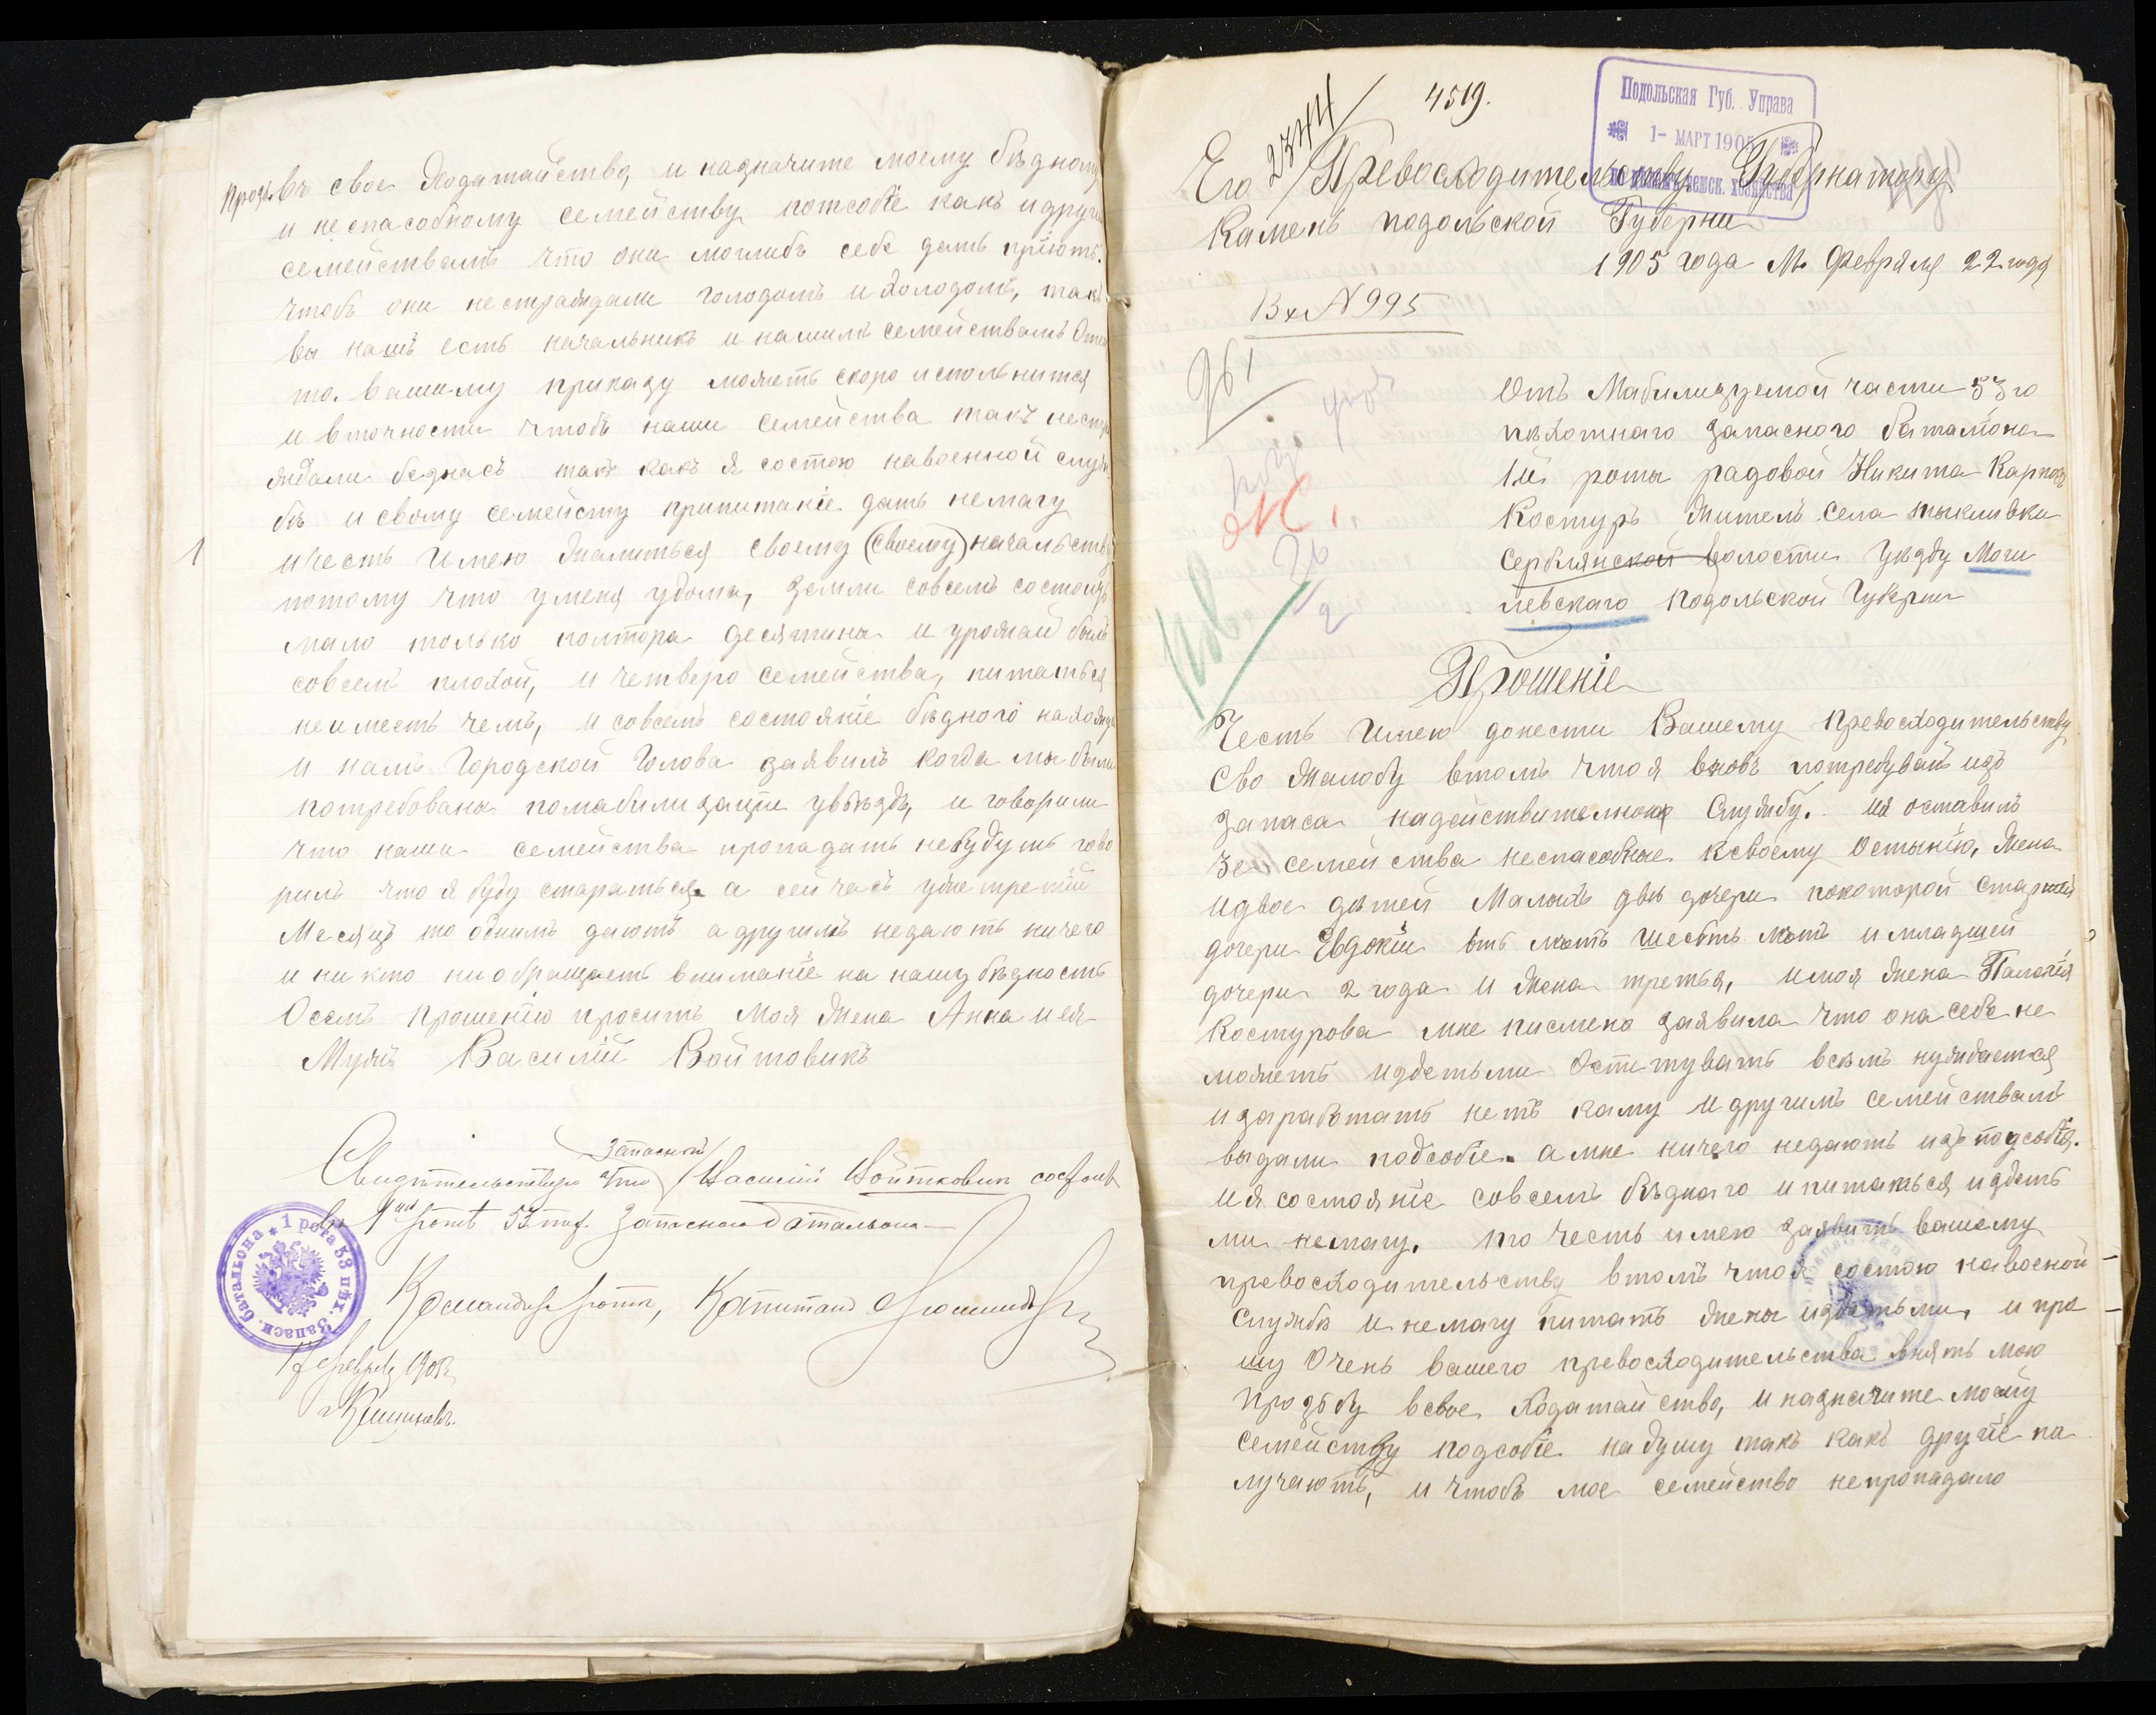 въ свое ходатайство, и назначите моему бѣдному
и неспасобному семейству потсобіе какъ и други
семействамъ что они моглибъ себе дать пріютъ.
чтобъ они нестраждали голодомъ и холодомъ, такъ
вы нашъ есть начальникъ и нашимъ семействамъ Отец
то. вашему приказу можетъ скоро испольнится
и вточности чтобъ наши семейства такъ нестра
ждали беднасъ такъ какъ я состою навоенной служ
бѣ и свому семейсту припитаніе дать немагу
1
и честь Имею жалиться своему (своему) начальству
потому что уменя удома, земли совсемъ состоитъ
мало только полтора десятины и урожай былъ
совсемъ плохой, и четверо семейства, питаться
неимеетъ чемъ, и совсемъ состояніе бѣдного нахожу
и намъ Городской Голова заявилъ когда мы были
потребованы помабилизацiи увѣздѣ, и говорили
что наши семейства пропадать небудутъ гово
рилъ что я буду стараться. а сейчасъ уже третій
Месяцъ то однимъ даютъ адругимъ недаютъ ничего
и ни кто ниобращаетъ вниманіе на нашу бѣдность
Осемъ прошенію проситъ моя жена Анна и ея
Мужъ Василій Войтовикъ
запасной
Свидѣтельствую что Василий Войтковик состоит
в 1ой роте 53 пех. запаснаго баталиона
1 рота 53 пѣх. запасн. батальона
Командир роты, Капитан
Февраля 1905
г Кишиневъ.
4519.
2344
Подольская Губ. Управа
1- МАРТ 1905
по дѣламъ земск. хозяйства
Его Превосходительству Губернатору
Камень подольской Губерни
1905 года М. Февраля 22 года
Вх N 995
Отъ Мабилизуемой части 53го
пѣхотнаго запасного баталіона
1й роты радовой Никита Карповъ
Костуръ житель села тыкливки
Серблянской волости Уѣзду Моги
левскаго подольской Губерни
Прошеніе
Честь Имею донести Вашему превосходительству
Сво жалобу втомъ что я вновъ потребуванъ изъ
запаса надействителною Службу. ия оставилъ
3е семейства неспасобные ксвоему Остынію, жена
идвое дѣтей Малыхъ двѣ дочери покоторой старшей
дочери Евдокіи отъ летъ шесть летъ имладшей
дочери 2 года и жена третья, имоя жена Палагія
Костурова мне писмено заявила что она себѣ не
можетъ издетьми Остытувать всѣмъ нуждается
изарабтать нетъ каму и другимъ семействамъ
выдали подсобіе. амне ничего недаютъ изъ подсобія.
ия состояніе совсемъ бѣдного ипитаться издеть
ми немагу. то Честь имею заявить вашему
превосходительству втомъ что я состою навоеной
службѣ и немагу питать жены издетьми, и про
шу Очень вашего превосходительства внять мою
прозьбу всвое ходатайство, и назначите моему
семейству подсобіе на душу такъ какъ другіе па
лучаютъ, и чтобъ мое семейство непропадало